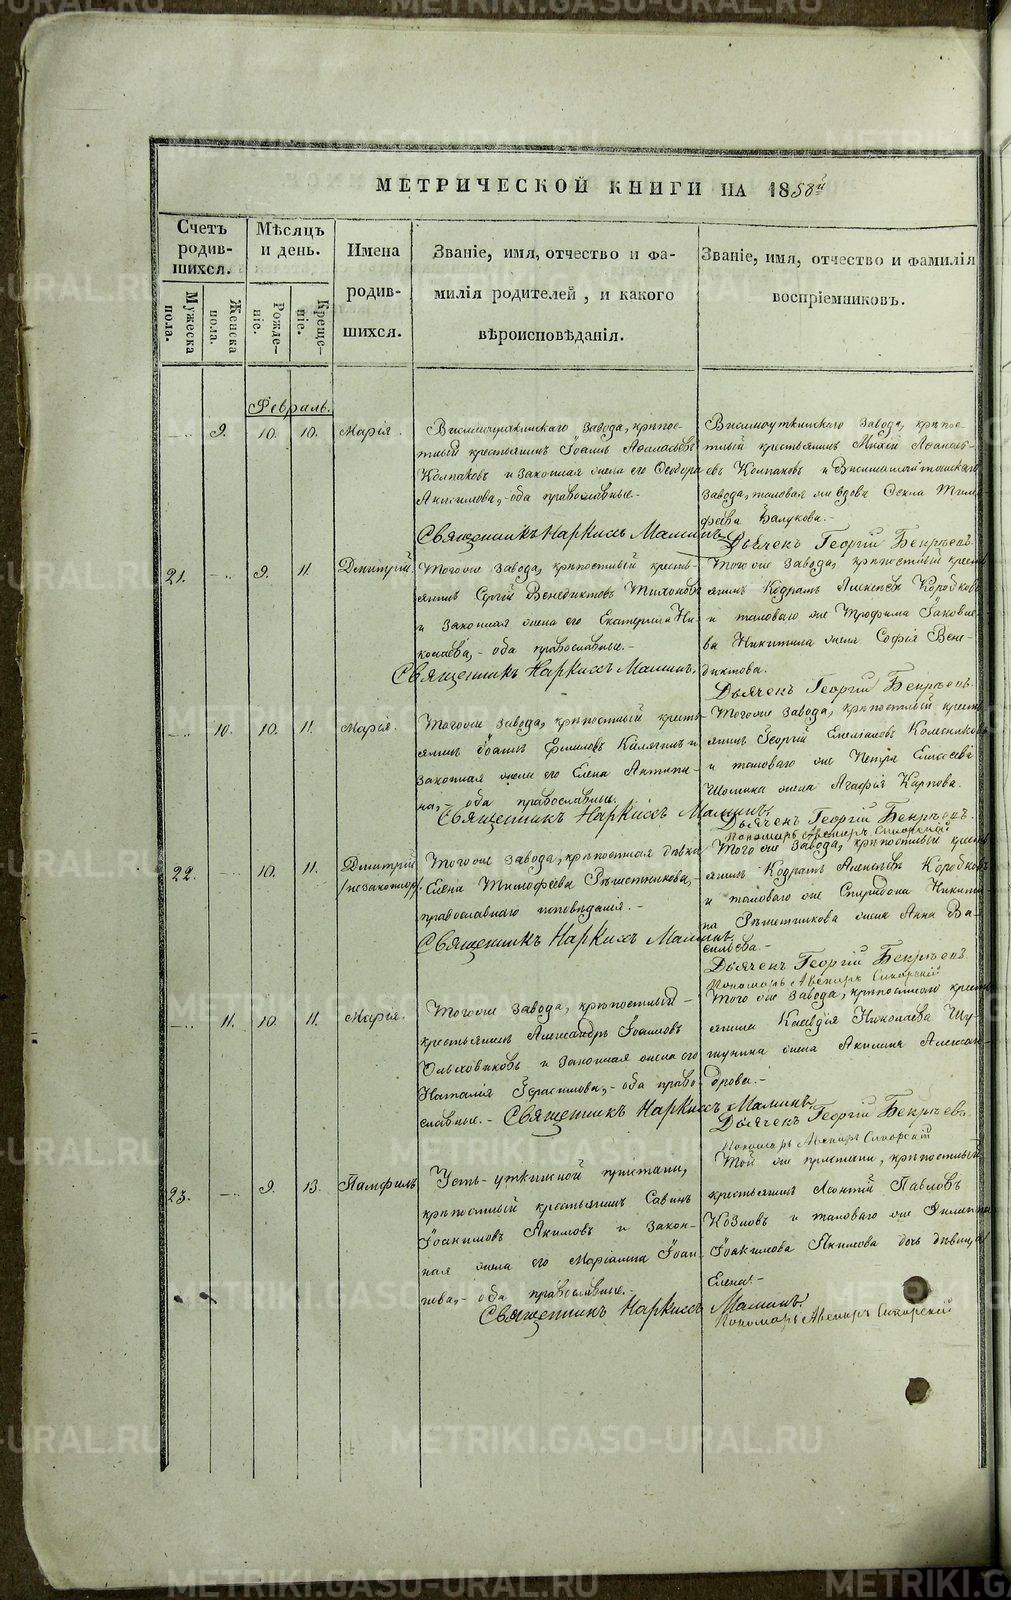 МЕТРИЧЕСКОЙ КНИГИ НА 1858й
Счетъ родив-шихся.
Мѣсяцъ и день.
Имена родив-шихся.
Званіе, имя, отчество и фа-
милія родителей, и какого
вѣроисповѣданія.
Званіе, имя, отчество и фамилія
воспріемниковъ.
Мужеска пола.
Женска пола.
Рожде-ніе.
Креще-ніе.
Февраль.
9. 10. 10. Марія.
Висимоуткинскаго завода, крѣпос-
тный крестьянинъ Іоаннъ
Колпаковъ и законная жена его Ѳеодора
Анисимова, оба православные.-
Священникъ Наркиссъ Маминъ.
Висимоуткинскаго завода, крѣпос-
тный крестьянинъ
евъ Колпаковъ и
завода, таковая же вдова Ѳекла Тимо
феева
Дьячекъ Георгій
21. 9. 11. Димитрій
Тогоже завода, крѣпостный кресть-
янинъ Сергій Венедиктовъ Тихоновъ
и законная жена его Екатерина Ни-
колаева, - оба православные.-
Священникъ Наркиссъ Маминъ.
Тогоже завода, крѣпостный кресть
янинъ Кодратъ Алексѣевъ Коробковъ
и таковаго же Трофима Іаковле-
ва Никитина жена Софія Вене-
диктова.
Дьячекъ Георгій
10. 10. 11. Марія.
Тогоже завода, крѣпостный кресть-
янинъ Іоаннъ Калягинъ и
законная жена его Елена Антипи-
на, - оба православные.
Священникъ Наркиссъ Маминъ.
Тогоже завода, крѣпостный кресть
янинъ Георгій Емеліановъ
и таковаго же Петра Елисеева
Шомина жена Агафія Карпова.
Дьячекъ Георгій
Пономарь Авениръ Сикорскій
22. 10. 11. Димитрій
/незаконнор/
Тогоже завода, крѣпостная дѣвка
Елена Тимофеева Рѣшетникова,-
православнаго исповѣданія.-
Священникъ Наркиссъ Маминъ.
Того же завода, крѣпостный кресть
янинъ Кодратъ Алексѣевъ Коробковъ
и таковаго же Спиридона Никити-
на Рѣшетникова жена Анна Ва-
сильева.-
Дьячекъ Георгій
Пономарь Авениръ Сикорскій
11. 10. 11. Марія.
Тогоже завода, крѣпостный -
крестьянинъ Александръ Іоанновъ
Ольховиковъ и законная жена его
Наталія Герасимова, - оба право-
славные.- Священникъ Наркиссъ Маминъ.
Того же завода, крѣпостнаго кресть
янина Клавдія Николаева Шу-
шунина жена Акилина Алексан-
дрова.-
Дьячекъ Георгій
Пономарь Авениръ Сикорскій
23. 9. 13. Памфилъ
Усть-уткинской пристани,
крѣпостный крестьянинъ Савинъ
Іоакимовъ Акимовъ и закон-
ная жена его Маріамна Іоан-
нова, - оба православные.-
Священникъ Наркиссъ Маминъ.
Той же пристани, крѣпостный
крестьянинъ Леонтій Павловъ
Козловъ и таковаго же Филиппа
Іоакимова Акимова дочь дѣвица
Елена.-
Пономарь Авениръ Сикорскій
METRIKI.GASO-URAL.RU